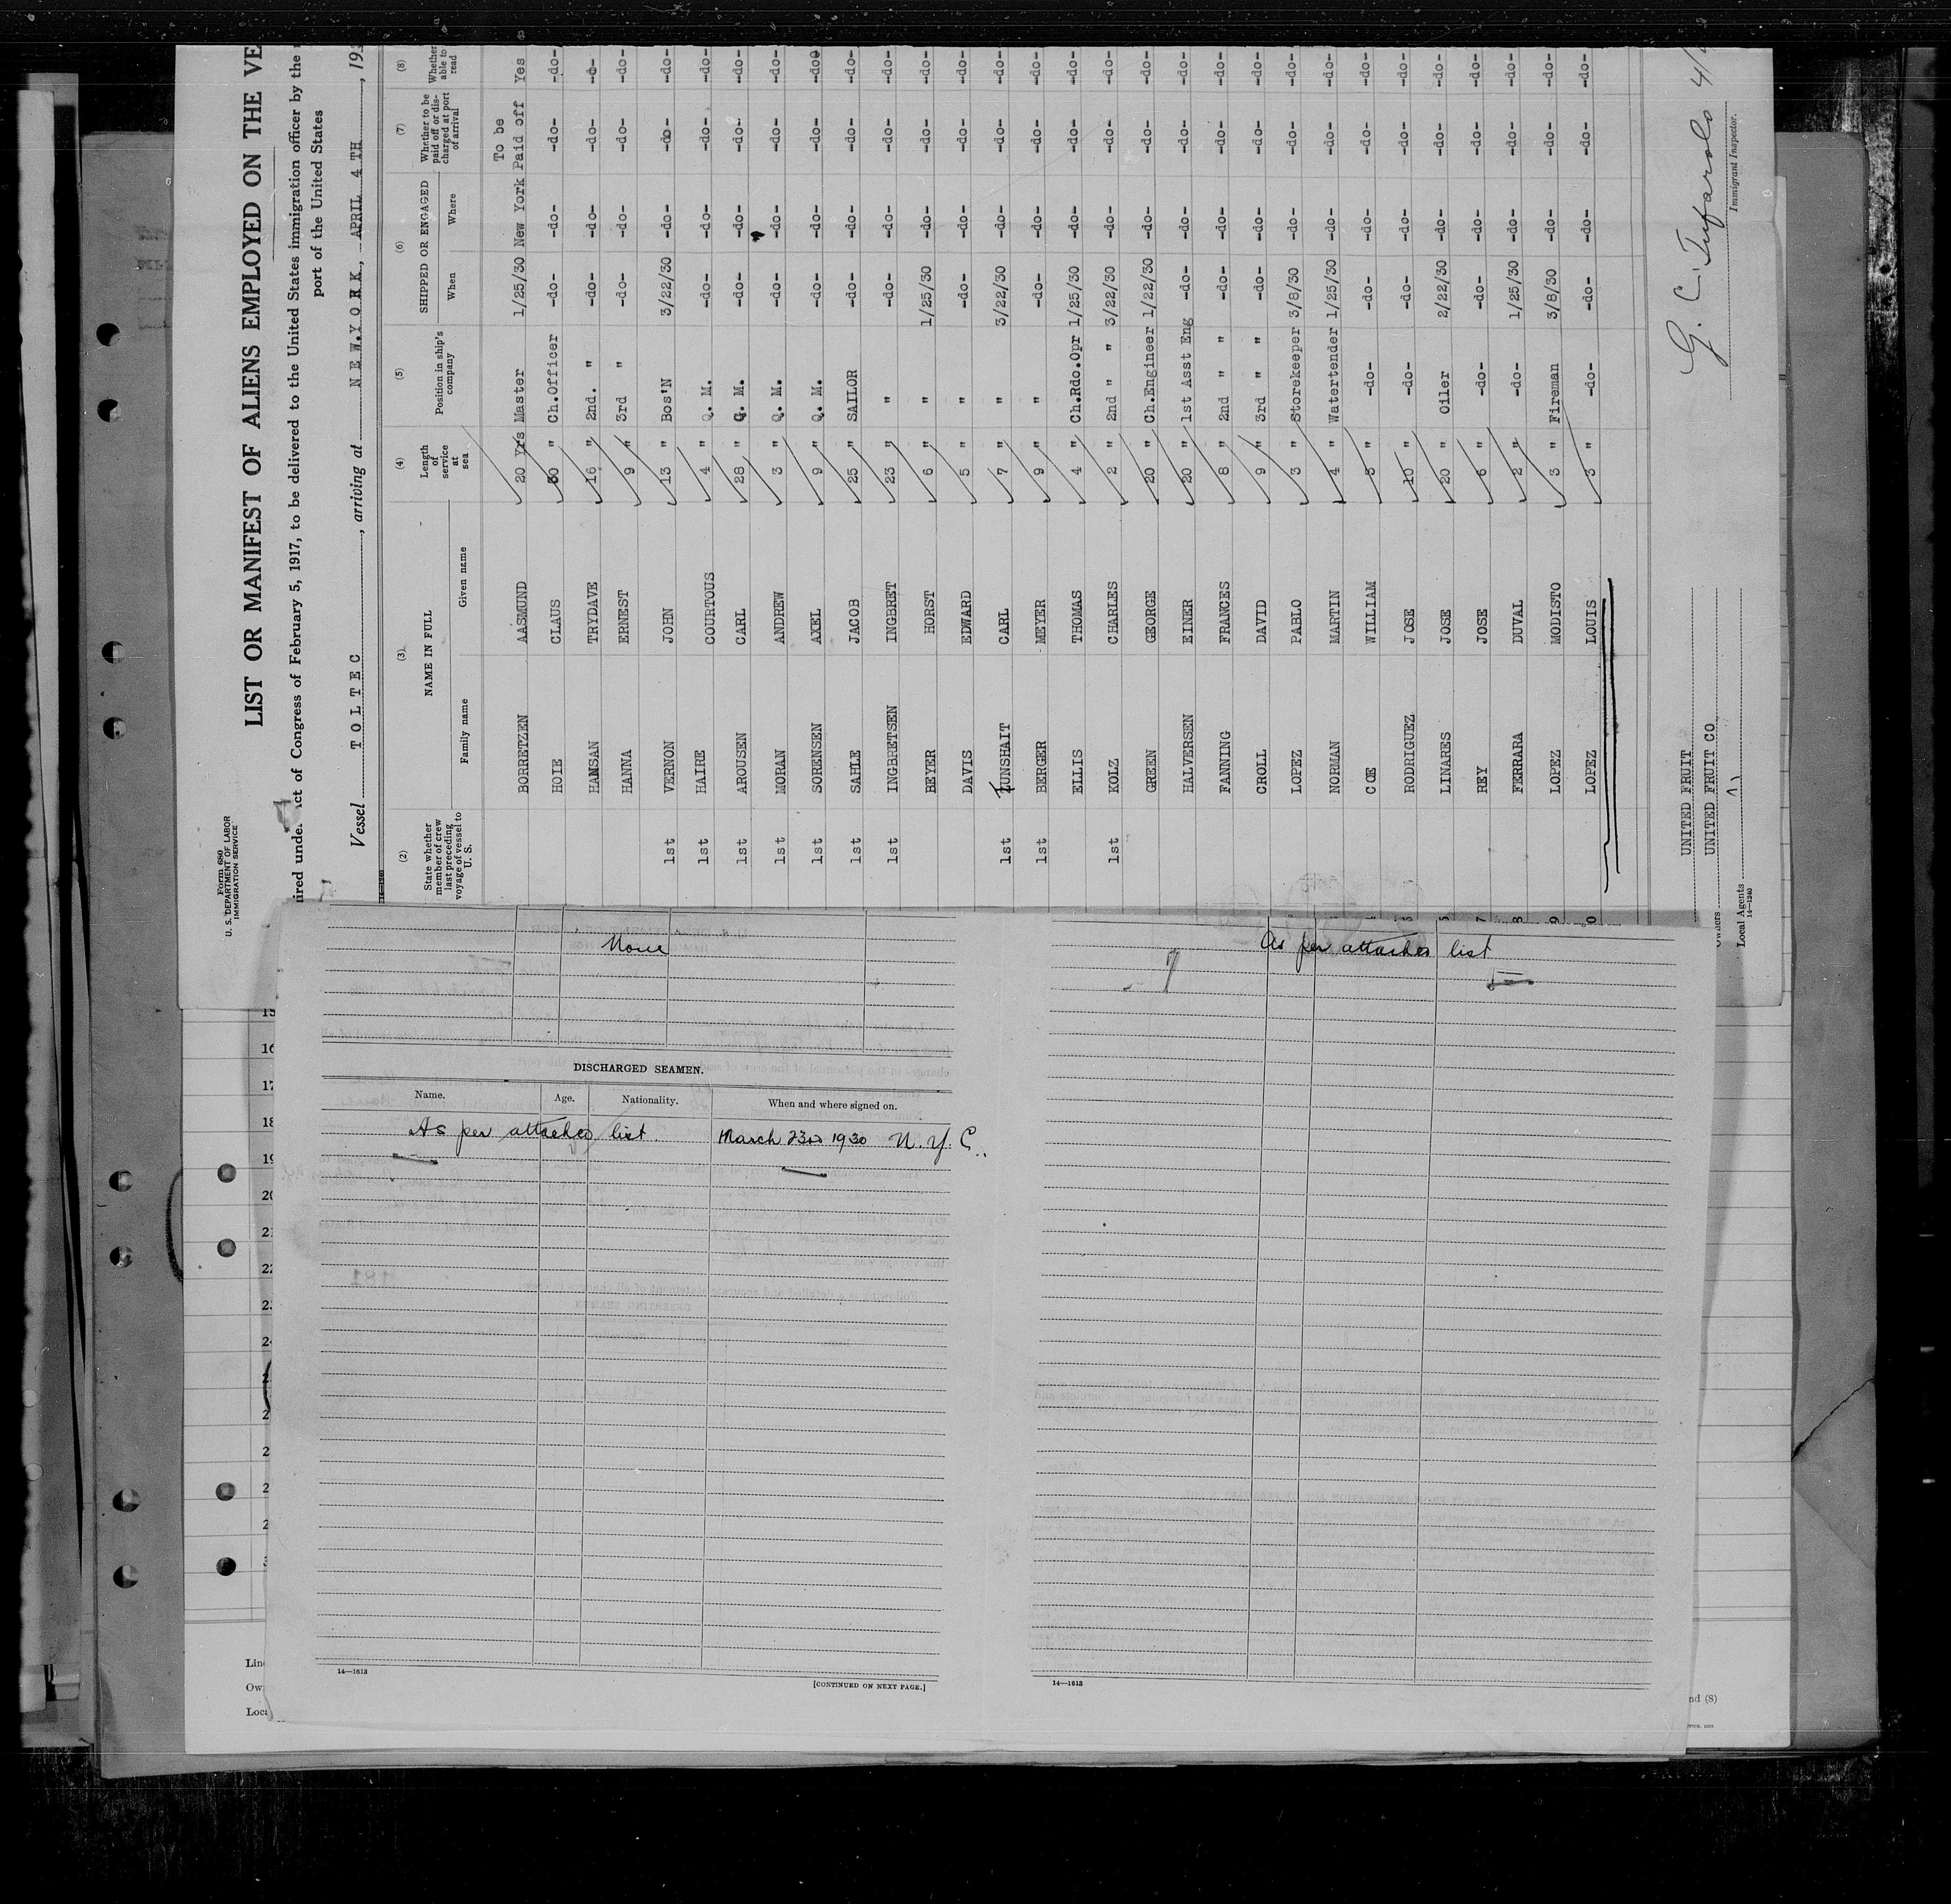 Form 680
U. S. DEPARTMENT OF LABOR
IMMIGRATION SERVICE
LIST OR MANIFEST OF ALIENS EMPLOYED ON THE VE
ired under Act of Congress of February 5, 1917, to be delivered to the United States immigration officer by the
port of the United States
Vessel TOLTEC, arriving at NEW.YORK, APRIL 4TH, 19
(2) (3) (4) (5) (6) (7) (8)
State whether member of crew last preceding voyage of vessel to U. S. NAME IN FULL Length of service at sea Position in ship's company SHIPPED OR ENGAGED Whether to be paid off or discharged at port of arrival Whether able to read
Family name Given name When Where
To be
BORRETZEN AASMUND 20 Yrs Master 1/25/30 New York Paid off Yes
HOIE CLAUS 30 " Ch.Officer -do- -do- -do- -do-
HANSAN TRYDAVE 16 " 2nd. " -do- -do- -do- -do-
HANNA ERNEST 9 " 3rd " -do- -do- -do- -do-
1st VERNON JOHN 13 " Bos'N 3/22/30 -do- -do- -do-
1st HAIRE COURTOUS 4 " Q. M. -do- -do- -do- -do-
1st AROUSEN CARL 28 " Q. M. -do- -do- -do- -do-
1st MORAN ANDREW 3 " Q. M. -do- -do- -do- -do-
1st SORENSEN AXEL 9 " Q. M. -do- -do- -do- -do-
1st SAHLE JACOB 25 " SAILOR -do- -do- -do- -do-
1st INGBRETSEN INGBRET 23 " " -do- -do- -do- -do-
BEYER HORST 6 " " 1/25/30 -do- -do- -do-
DAVIS EDWARD 5 " " -do- -do- -do- -do-
1st LUNSHAIT CARL 7 " " 3/22/30 -do- -do- -do-
1st BERGER MEYER 9 " " -do- -do- -do- -do-
ELLIS THOMAS 4 " Ch.Rdo.Opr 1/25/30 -do- -do- -do-
1st KOLZ CHARLES 2 " 2nd " " 3/22/30 -do- -do- -do-
GREEN GEORGE 20 " Ch.Engineer 1/22/30 -do- -do- -do-
HALVERSEN EINER 20 " 1st Asst Eng -do- -do- -do- -do-
FANNING FRANCES 8 " 2nd " " -do- -do- -do- -do-
CROLL DAVID 9 " 3rd " " -do- -do- -do- -do-
LOPEZ PABLO 3 " Storekeeper 3/8/30 -do- -do- -do-
NORMAN MARTIN 4 " Watertender 1/25/30 -do- -do- -do-
COE WILLIAM 3 " -do- -do- -do- -do- -do-
RODRIGUEZ JOSE 10 " -do- -do- -do- -do- -do-
LINARES JOSE 20 " Oiler 2/22/30 -do- -do- -do-
REY JOSE 6 " -do- -do- -do- -do- -do-
FERRARA DUVAL 2 " -do- 1/25/30 -do- -do- -do-
LOPEZ MODISTO 3 " Fireman 3/8/30 -do- -do- -do-
LOPEZ LOUIS 3 " -do- -do- -do- -do- -do-
UNITED FRUIT
Owners UNITED FRUIT CO
Local Agents
14—1240
Immigrant Inspector.
None
DISCHARGED SEAMEN.
Name. Age. Nationality. When and where signed on.
As per attached list. March 23rd 1930 N. Y. C.
14—1613
[CONTINUED ON NEXT PAGE.]
As per attached list
14—1613
15
16
17
18
19
20
21
22
nd (8)